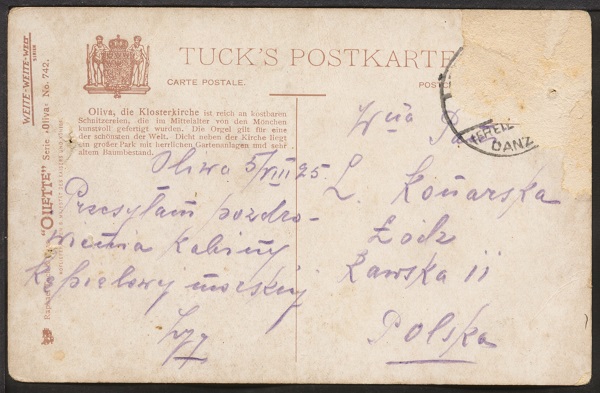 WEITE-WEITE-WELT
SERIE
"OILETTE" Serie »Oliva« No. 742.
TUCK'S POSTKARTE
CARTE POSTALE.
POSTC
Oliva, die Klosterkirche ist reich an kostbaren
Schnitzereien, die im Mittelalter von den Mönchen
kunstvoll gefertigt wurden. Die Orgel gilt für eine
der schönsten der Welt. Dicht neben der Kirche liegt
ein großer Park mit herrlichen Gartenanlagen und sehr
altem Baumbestand.
Oliwa 5/VIII 25
Przesyłam pozdro-
wienia kabiny
kąpielowy morskiej
DANZ
Wna
L. Konarska
Łódz
Rawska 11
Polska